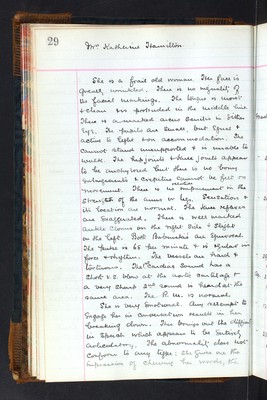 29
Mrs Katharine Hamilton.
She is a frail old woman. The face is
greatly wrinkled. There is no inequality of
its facial markings. The tongue is moist
& clean & is protruded in the middle line.
There is a marked arcus senilis in either
eye. The pupils are small, but equal &
active to light & on accommodation. She
cannot stand unsupported & is unable to
walk. The hip joints & knee joints appear
to be anchylosed but there is no bony
enlargements & crepitus cannot be felt on
movement. There is no impairment in the
relative
strength of the arms or legs. Sensation &
its location are normal. The knee reflexes
are exaggerated. There is well marked
ankle clonus on the right side & slight
on the left. Both Babinskis are equivocal.
The pulse is 65 per minute & is regular in
force & rhythm. The vessels are hard &
tortuous. The Cardiac sound has a
short V.S. blow at the aortic cartilage &
a very sharp 2nd sound is heard at the
same area. The P. M. is normal.
She is very emotional. Any attempt to
engage her in conversation results in her
breaking down. This brings out the difficulty
in speech which appears to be entirely
articulatory. The abnormality does not
conform to any type: she gives one the
impression of chewing her words, the